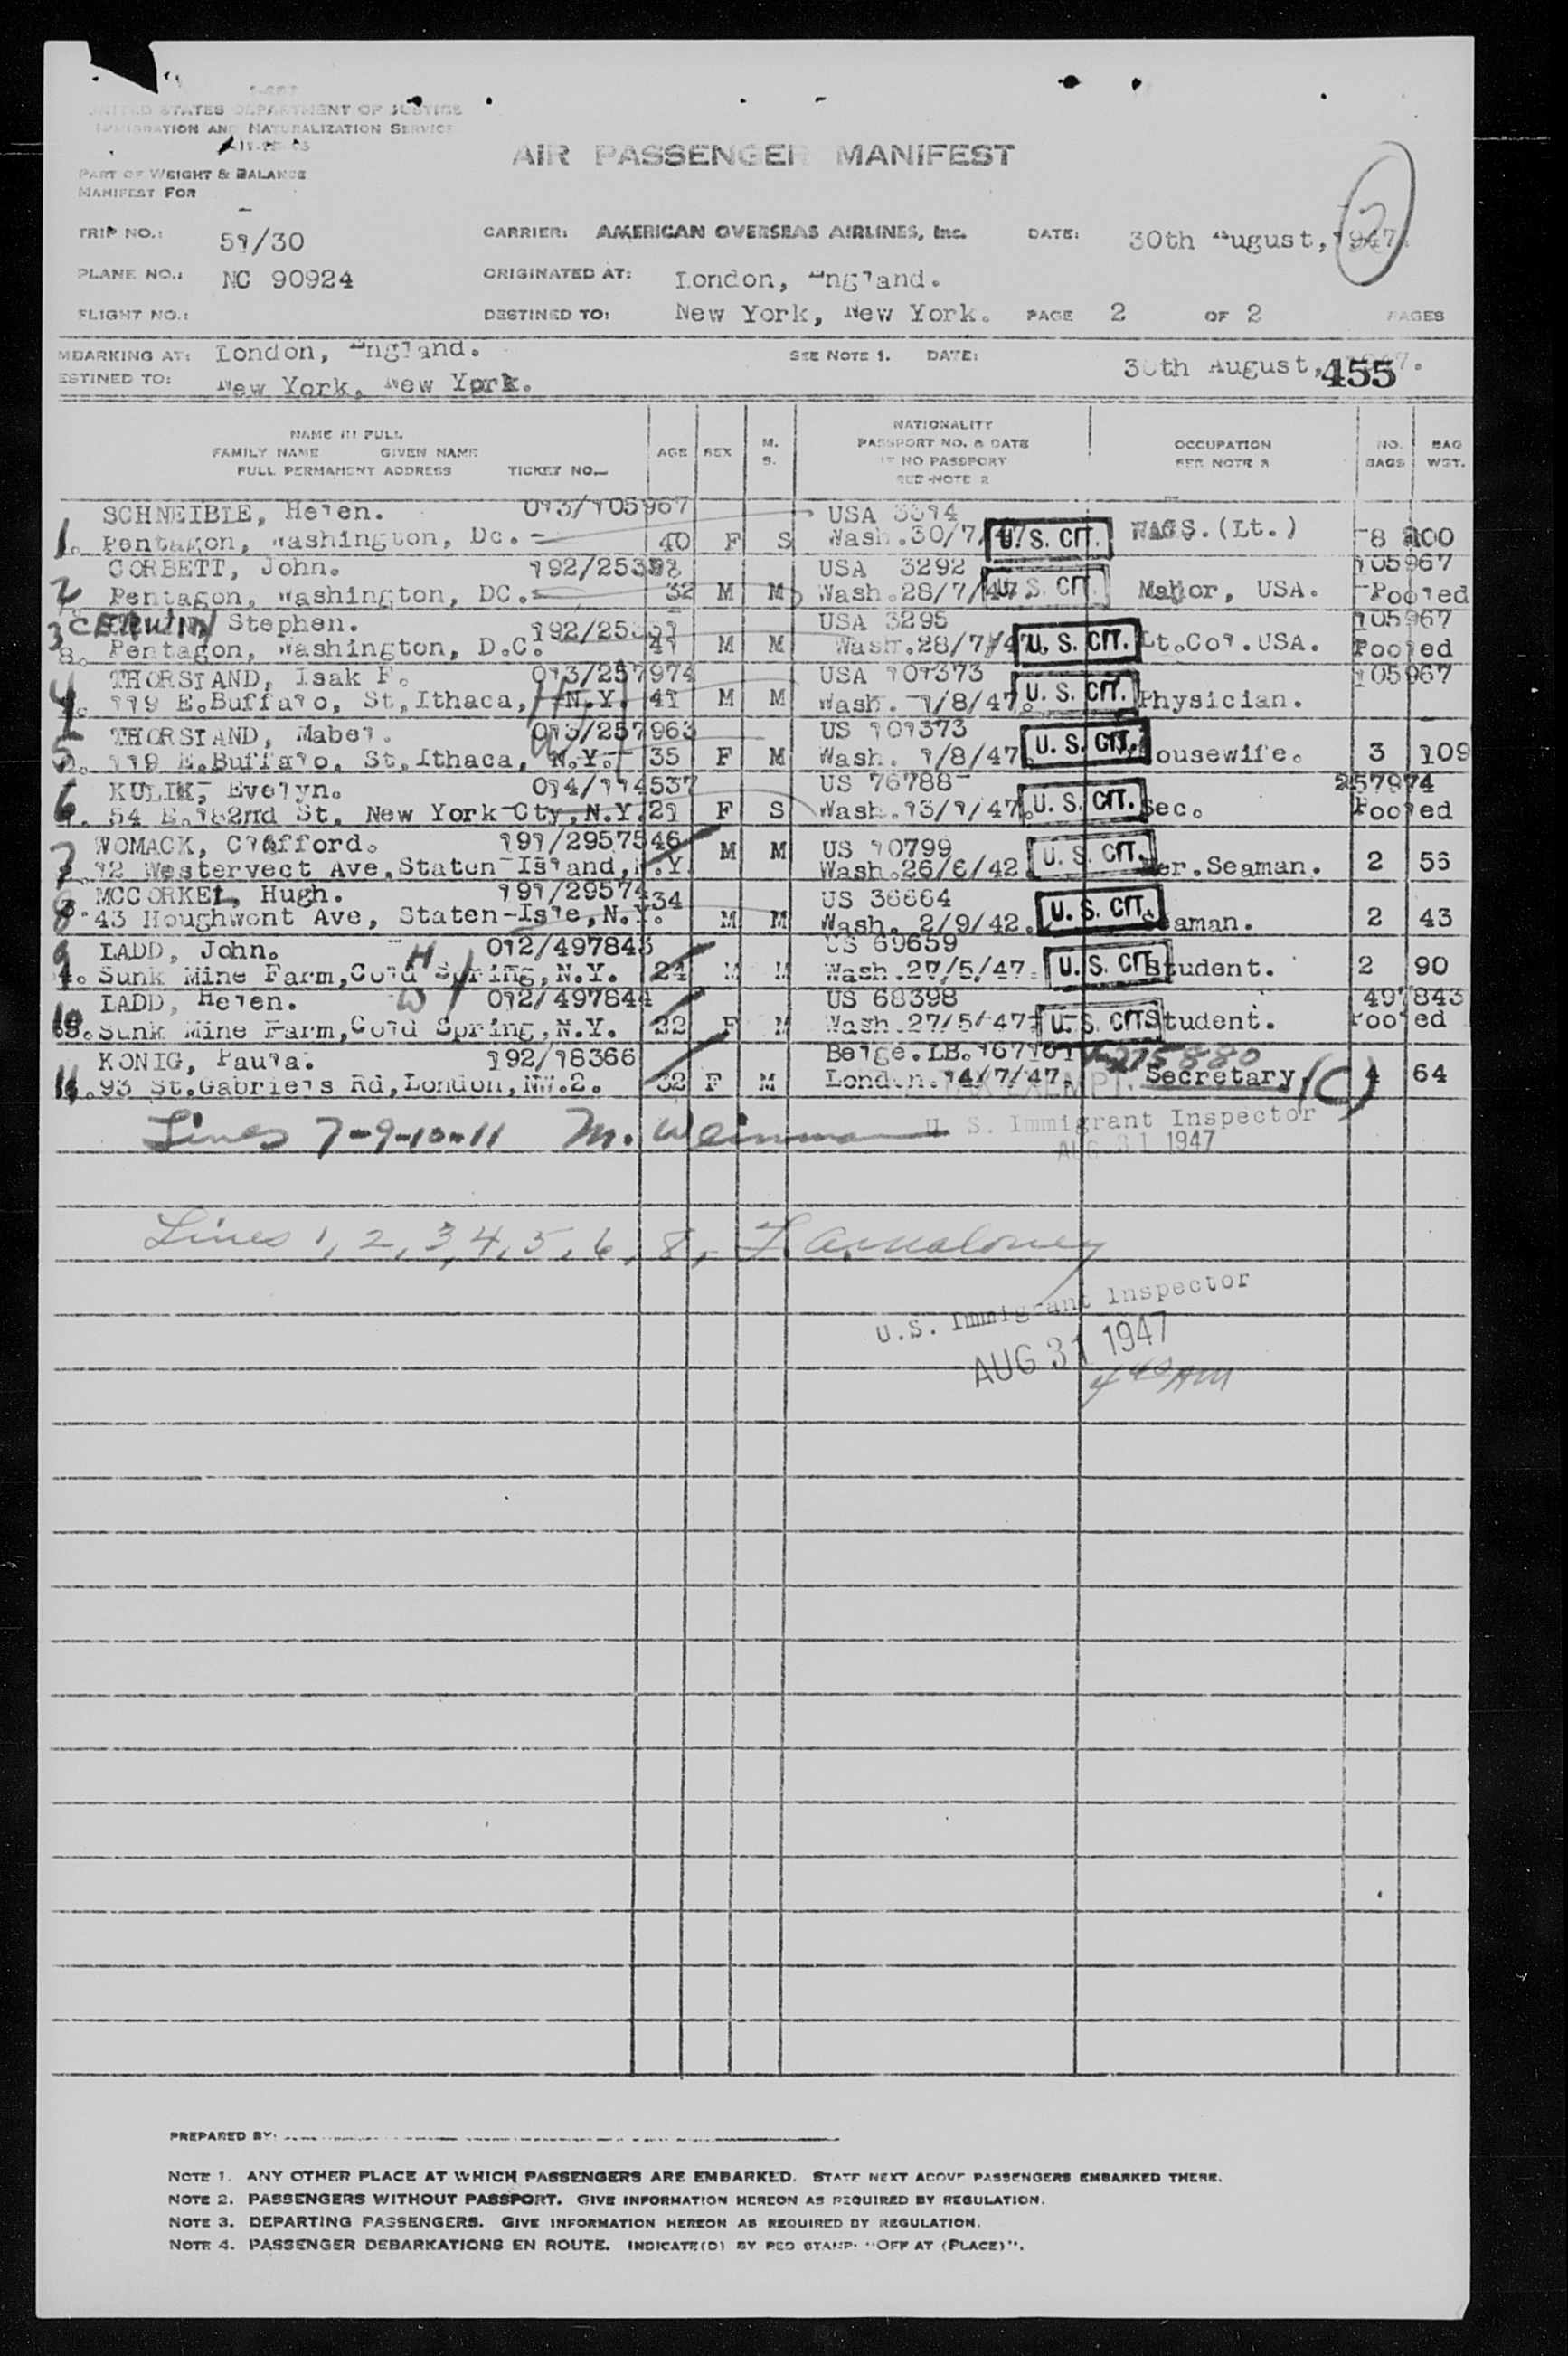 UNITED STATES DEPARTMENT OF JUSTICE
IMMIGRATION AND NATURALIZATION SERVICE
AIR PASSENGER MANIFEST
PART OF WEIGHT & BALANCE
MANIFEST FOR
2
TRIP NO.: 51/30 CARRIER: AMERICAN OVERSEAS AIRLINES, Inc. DATE: 30th August, 1947.
PLANE NO.: NC 90924 ORIGINATED AT: London, England.
FLIGHT NO.: DESTINED TO: New York, New York. PAGE 2 OF 2 PAGES
MBARKING AT: London, England. SEE NOTE 1. DATE: 30th August, 1947.
ESTINED TO: New York, New York. 455
NAME IN FULL
FAMILY NAME GIVEN NAME
FULL PERMANENT ADDRESS TICKET NO. AGE SEX M. S. NATIONALITY PASSPORT NO. & DATE IF NO PASSPORT SEE NOTE 2 OCCUPATION SEE NOTE 3 NO. BAGS BAG WGT.
SCHNEIBLE, Helen. 013/105967 USA 3314
1. Pentagon, Washington, Dc. 40 F S Wash.30/7/47 U. S. CIT. WACS.(Lt.) 8 200
CORBETT, John. 192/25 USA 3292 105967
2 Pentagon, Washington, DC. 32 M M Wash.28/7/47 U. S. CIT. Major, USA. Pooled
3 CERWIN Stephen. 192/25 USA 3295 105967
Pentagon, Washington, D.C. 41 M M Wash.28/7/47 U. S. CIT. Lt.Col.USA. Pooled
THORSLAND, Isak F. 013/257974 USA 101373 105967
4. 119 E.Buffalo, St,Ithaca, N.Y. 41 M M Wash. 1/8/47. U. S. CIT. Physician.
THORSLAND, Mabel. 013/257963 US 101373
5. 119 E.Buffalo, St,Ithaca, N.Y. 35 F M Wash. 1/8/47. U. S. CIT. ousewife. 3 109
KULIK, Evelyn. 014/114537 US 76788 257974
6. 54 E.182nd St, New York Cty, N.Y. 21 F S Wash.13/1/47. U. S. CIT. Sec. Pooled
WOMACK, Clifford. 191/2957546 US 10799
7. 12 Westervect Ave,Staten Island, N.Y. M M Wash.26/6/42. U. S. CIT. Mer.Seaman. 2 56
MCCORKEL, Hugh. 191/29574 34 US 36664
8. 43 Houghwont Ave, Staten-Isle, N.Y. M M Wash. 2/9/42. U. S. CIT. Seaman. 2 43
9 LADD, John. H 012/497843 US 69659
Sunk Mine Farm,Cold Spring,N.Y. 24 M M Wash.27/5/47. U. S. CIT. Student. 2 90
LADD, Helen. W 012/497844 US 68398 497843
10. Sunk Mine Farm,Cold Spring,N.Y. 22 F M Wash.27/5/47. U. S. CIT. Student. Pooled
KONIG, Paula. 192/18366 Belge.LB.167101 275880
11. 93 St.Gabriels Rd,London,NW.2. 32 F M London.14/7/47. TAX EXEMPT. Secretary. (C) 4 64
Lines 7-9-10-11 M. Weinman U. S. Immigrant Inspector
AUG 31 1947
Lines 1, 2, 3, 4, 5, 6, 8, F. A. Maloney
U.S. Immigrant Inspector
AUG 31 1947
4 40 AM
PREPARED BY:
NOTE 1. ANY OTHER PLACE AT WHICH PASSENGERS ARE EMBARKED. STATE NEXT ABOVE PASSENGERS EMBARKED THERE.
NOTE 2. PASSENGERS WITHOUT PASSPORT. GIVE INFORMATION HEREON AS REQUIRED BY REGULATION.
NOTE 3. DEPARTING PASSENGERS. GIVE INFORMATION HEREON AS REQUIRED BY REGULATION.
NOTE 4. PASSENGER DEBARKATIONS EN ROUTE. INDICATE(D) BY RED STAMP. "OFF AT (PLACE)".